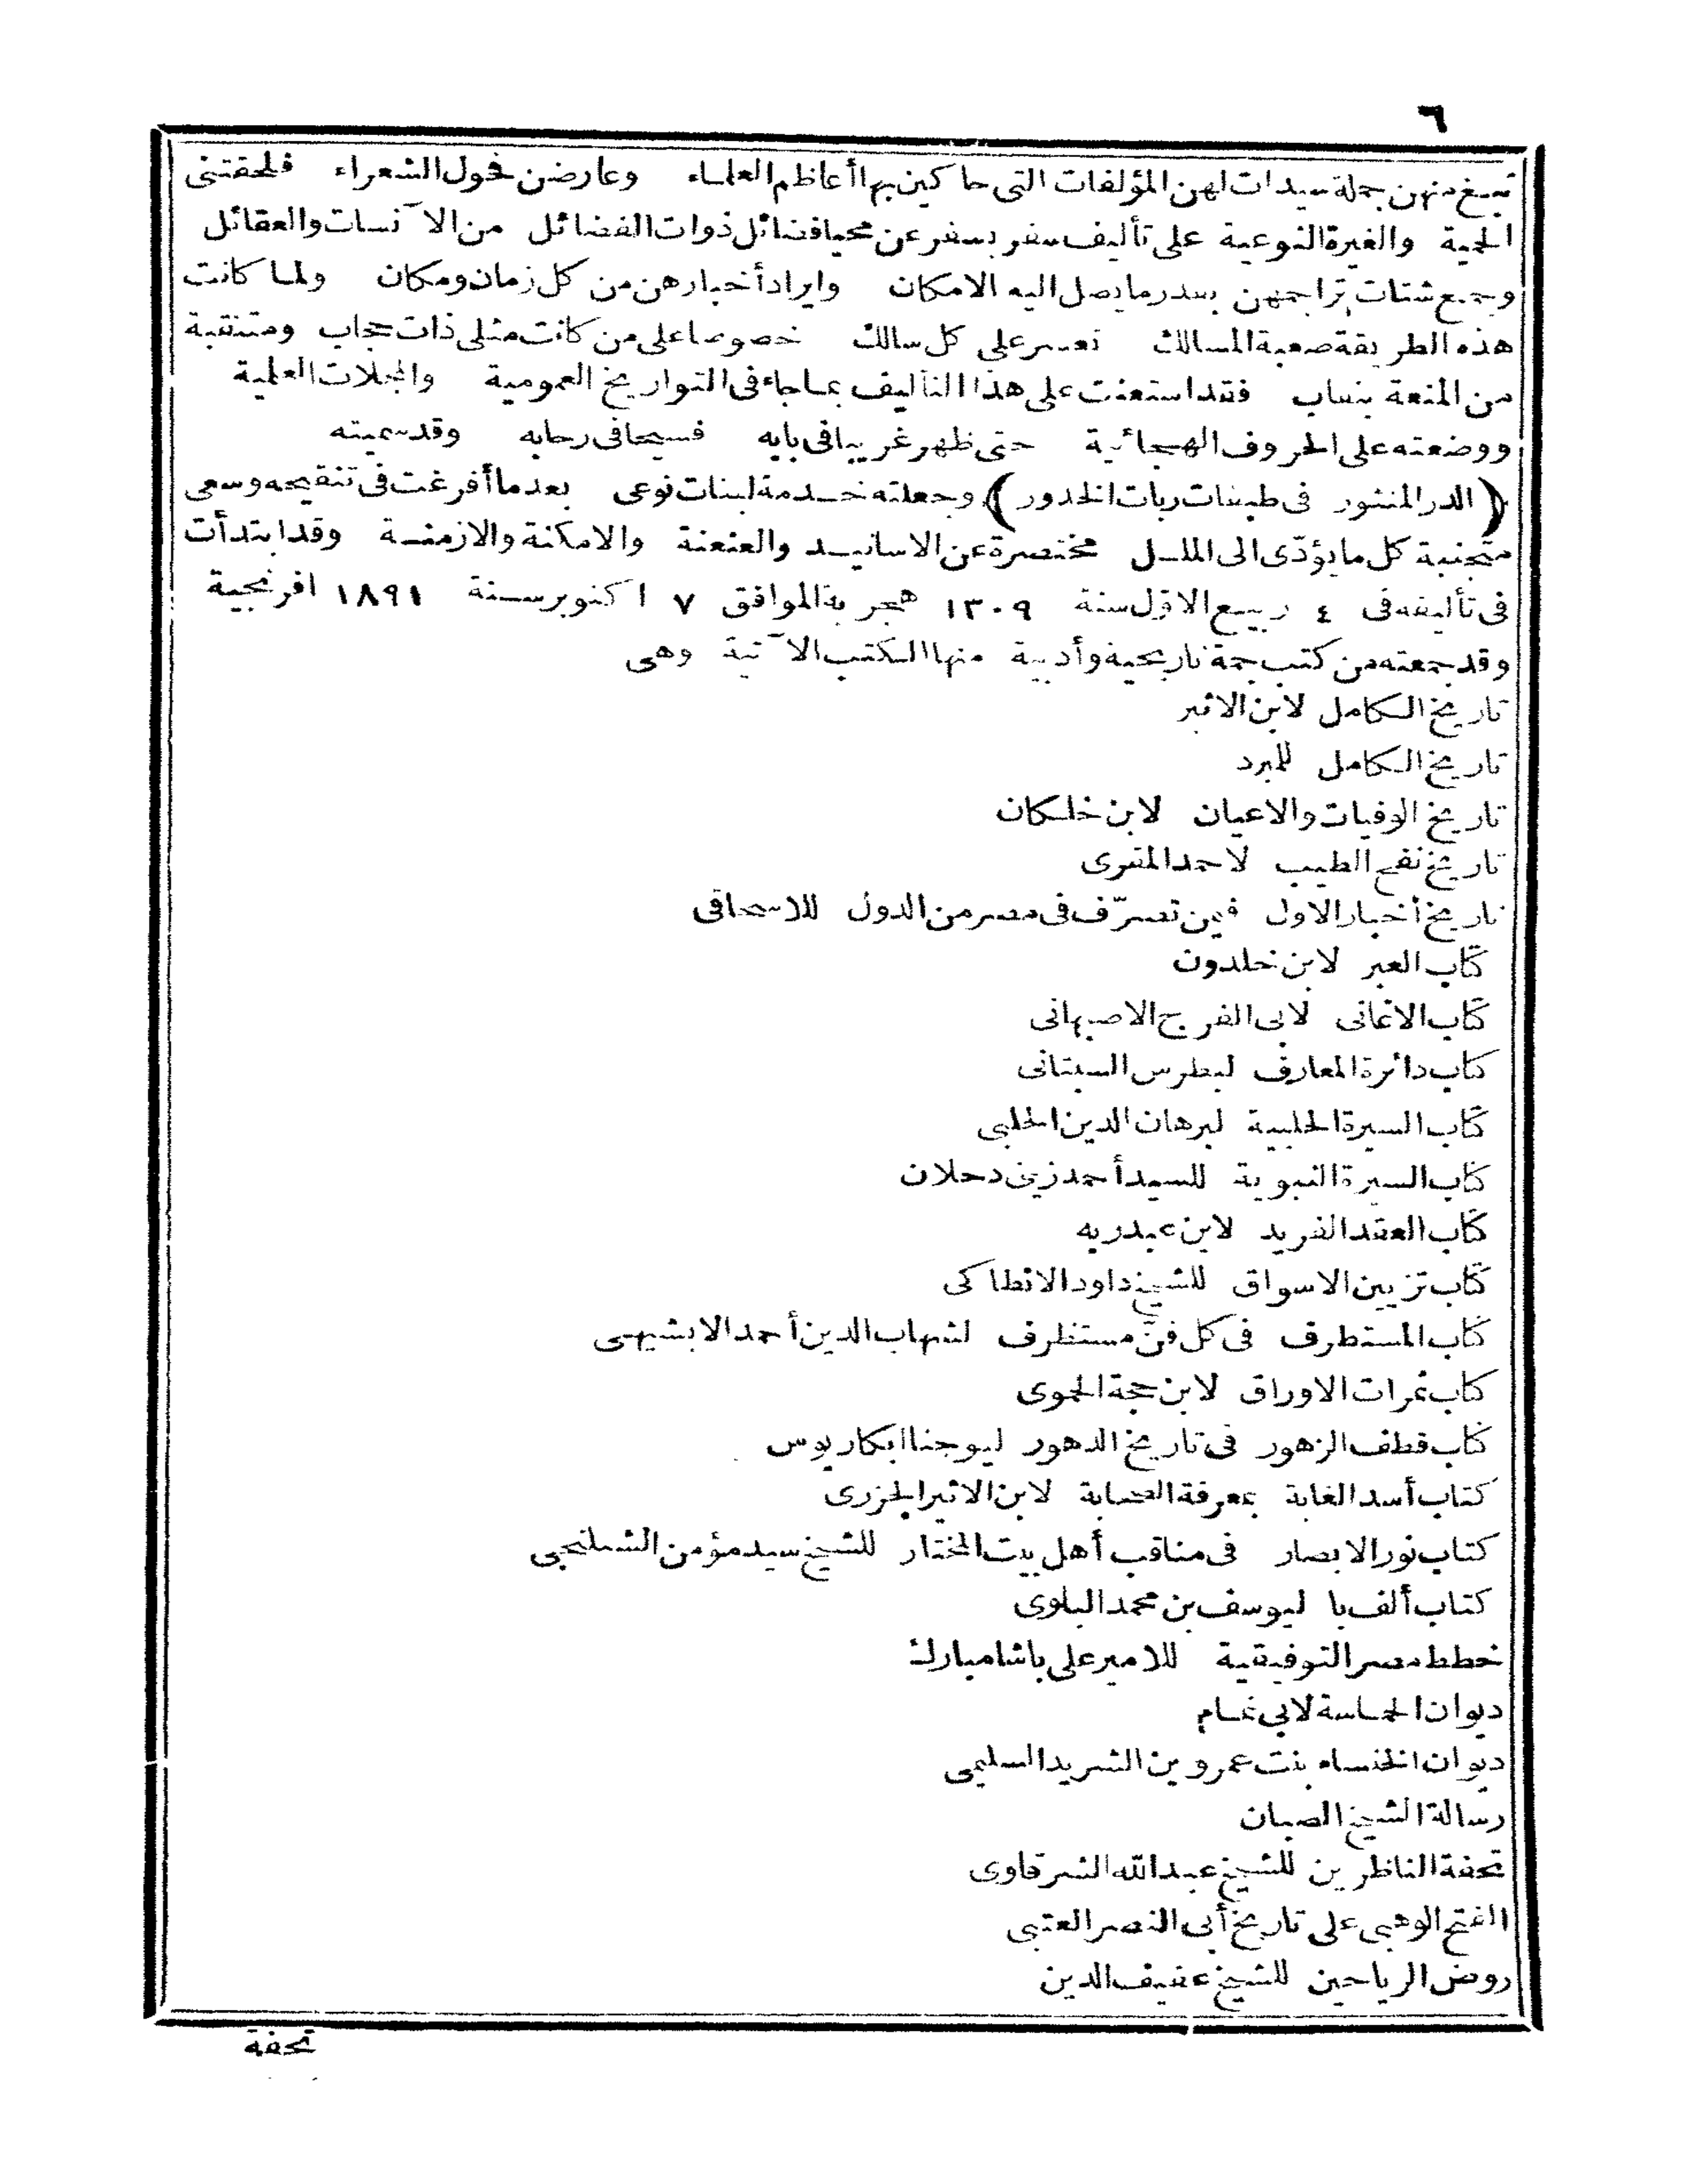 ٦
نبغ منهن جملة سيدات لهن المؤلفات التى حاكين بها أعاظم العلماء وعارضن فحول الشعراء فلحقتنى
الحمية والغيرة النوعية على تأليف سفر يسفر عن محيا فضائل ذوات الفضائل من الآنسات والعقائل
وجمع شتات تراجمهن بقدر ما يصل اليه الامكان وايراد أخبارهن من كل زمان ومكان ولما كانت
هذه الطريقة صعبة المسالك تعسر على كل سالك خصوصا على من كانت مثلى ذات حجاب ومتنقبة
من المنعة بنقاب فقد استعنت على هذا التأليف بما جاء فى التواريخ العمومية والمجلات العلمية
ووضعته على الحروف الهجائية حتى ظهر غريبا فى بابه فسيحا فى رحابه وقد سميته
(الدر المنثور فى طبقات ربات الخدور) وجعلته خدمة لبنات نوعى بعد ما أفرغت فى تنقيحه وسعى
متجنبة كل ما يؤدّى الى الملل مختصرة عن الاسانيد والعنعنة والامكنة والازمنة وقد ابتدأت
فى تأليفه فى ٤ ربيع الاوّل سنة ١٣٠٩ هجرية الموافق ٧ اكتوبر سنة ١٨٩١ افرنجية
وقد جمعته من كتب جمة تاريخية وأدبية منها الكتب الآتية وهى
تاريخ الكامل لابن الاثير
تاريخ الكامل للمبرد
تاريخ الوفيات والاعيان لابن خلكان
تاريخ نفح الطيب لاحمد المقرى
تاريخ أخبار الاول فيمن تصرّف فى مصر من الدول للاسحاقى
كتاب العبر لابن خلدون
كتاب الاغانى لابى الفرج الاصبهانى
كتاب دائرة المعارف لبطرس البستانى
كتاب السيرة الحلبية لبرهان الدين الحلبى
كتاب السيرة النبوية للسيد أحمد زينى دحلان
كتاب العقد الفريد لابن عبد ربه
كتاب تزيين الاسواق للشيخ داود الانطاكى
كتاب المستطرف فى كل فنّ مستظرف لشهاب الدين أحمد الابشيهى
كتاب ثمرات الاوراق لابن حجة الحموى
كتاب قطف الزهور فى تاريخ الدهور ليوحنا ابكاريوس
كتاب أسد الغابة بمعرفة الصحابة لابن الاثير الجزرى
كتاب نور الابصار فى مناقب أهل بيت المختار للشيخ سيد مؤمن الشبلنجى
كتاب ألف با ليوسف بن محمد البلوى
خطط مصر التوفيقية للامير على باشا مبارك
ديوان الحماسة لابي تمام
ديوان الخنساء بنت عمرو بن الشريد السليمى
رسالة الشيخ الصبان
تحفة الناظرين للشيخ عبد الله الشرقاوى
الفتح الوهبى على تاريخ أبى النصر العتبى
روض الرياحين للشيخ عفيف الدين
تحفة